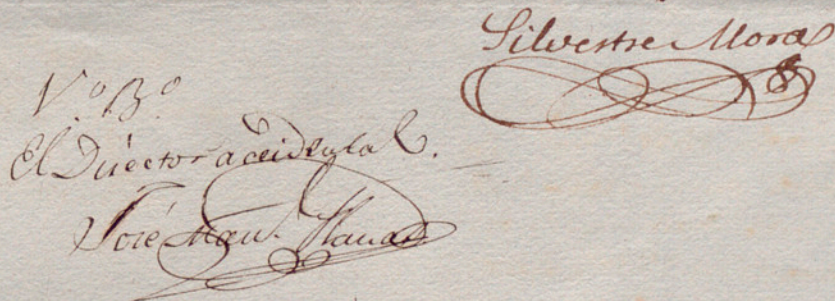 Silvestre Mora
Vº Bº
El Director accidental.
José Man.